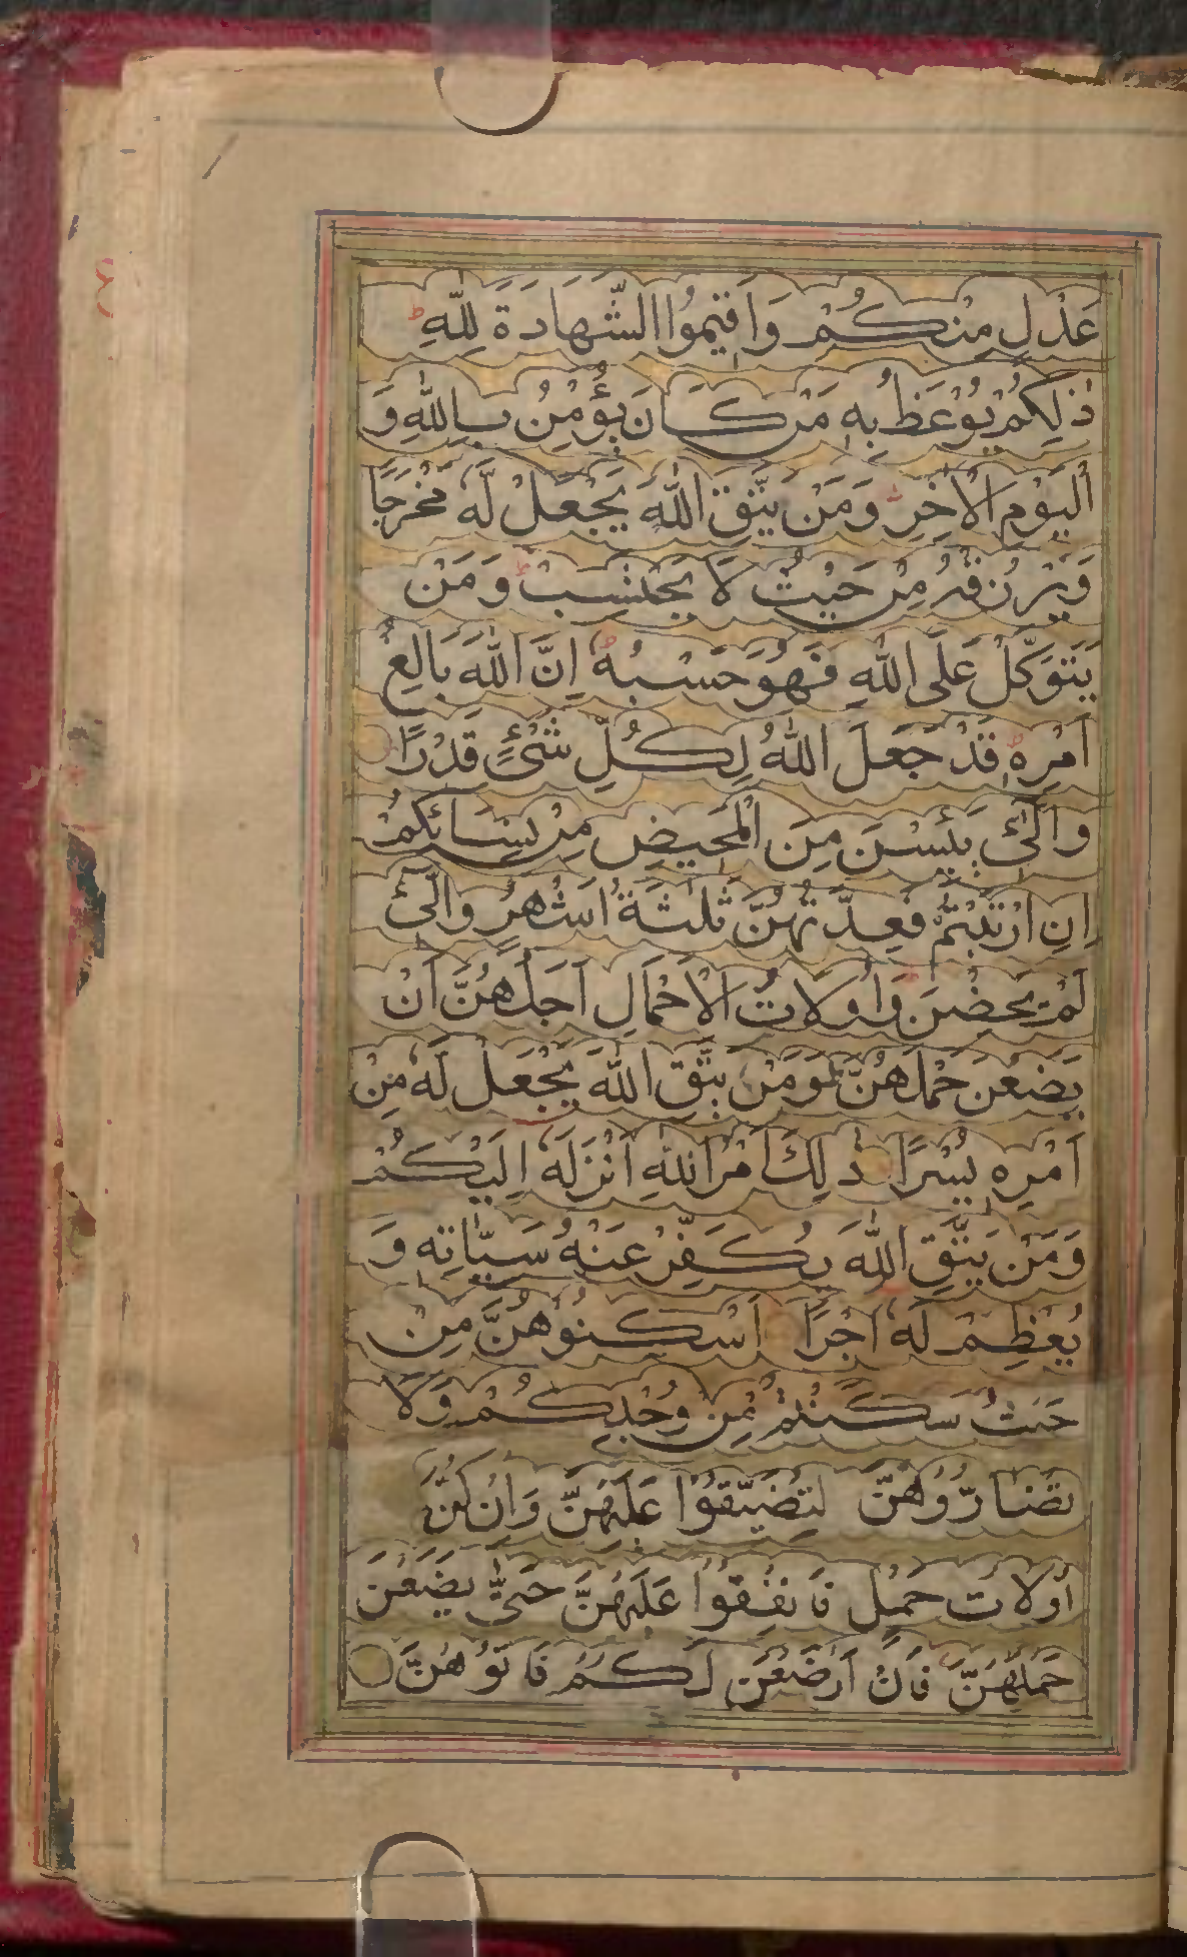 عَدْلٍ مِنْكُمْ وَاَقِيْمُوا الشَّهَادَةَ لِلّٰهِ ط
ذٰلِكُمْ يُوْعَظُ بِهٖ مَنْ كَانَ يُؤْمِنُ بِاللّٰهِ وَ
الْيَوْمِ الْاٰخِرِ وَمَنْ يَتَّقِ اللّٰهَ يَجْعَلْ لَّهٗ مَخْرَجًا
وَيَرْزُقْهُ مِنْ حَيْثُ لَا يَحْتَسِبْ ط وَمَنْ
يَتَوَكَّلْ عَلَى اللّٰهِ فَهُوَ حَسْبُهٗ ط اِنَّ اللّٰهَ بَالِغُ
اَمْرِهٖ ط قَدْ جَعَلَ اللّٰهُ لِكُلِّ شَيْءٍ قَدْرًا
وَالّٰٓئِ يَئِسْنَ مِنَ الْمَحِيْضِ مِنْ نِسَائِكُمْ
اِنِ ارْتَبْتُمْ فَعِدَّتُهُنَّ ثَلٰثَةُ اَشْهُرٍ وَالّٰٓئِ
لَمْ يَحِضْنَ ط وَاُولَاتُ الْاَحْمَالِ اَجَلُهُنَّ اَنْ
يَضَعْنَ حَمْلَهُنَّ ط وَمَنْ يَتَّقِ اللّٰهَ يَجْعَلْ لَهٗ مِنْ
اَمْرِهٖ يُسْرًا ذٰلِكَ اَمْرُ اللّٰهِ اَنْزَلَهٗ اِلَيْكُمْ
وَمَنْ يَتَّقِ اللّٰهَ يُكَفِّرْ عَنْهُ سَيِّاٰتِهٖ وَ
يُعْظِمْ لَهٗ اَجْرًا اَسْكِنُوْهُنَّ مِنْ
حَيْثُ سَكَنْتُمْ مِنْ وُجْدِكُمْ وَلَا
تُضَارُّوْهُنَّ لِتُضَيِّقُوْا عَلَيْهِنَّ وَاِنْ كُنَّ
اُولَاتِ حَمْلٍ فَاَنْفِقُوْا عَلَيْهِنَّ حَتّٰى يَضَعْنَ
حَمْلَهُنَّ فَاِنْ اَرْضَعْنَ لَكُمْ فَاٰتُوْهُنَّ